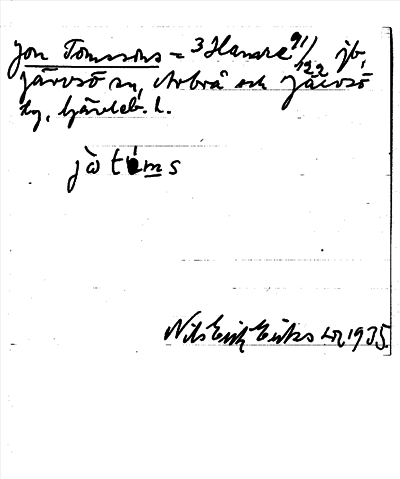 Jon Tomssons = 3 Hamra 91/122 jb,
Järvsö sn, Arbrå och Järvsö
tg, Gävleb. l.
jò tòms
Nils Erik Eriks 1935.